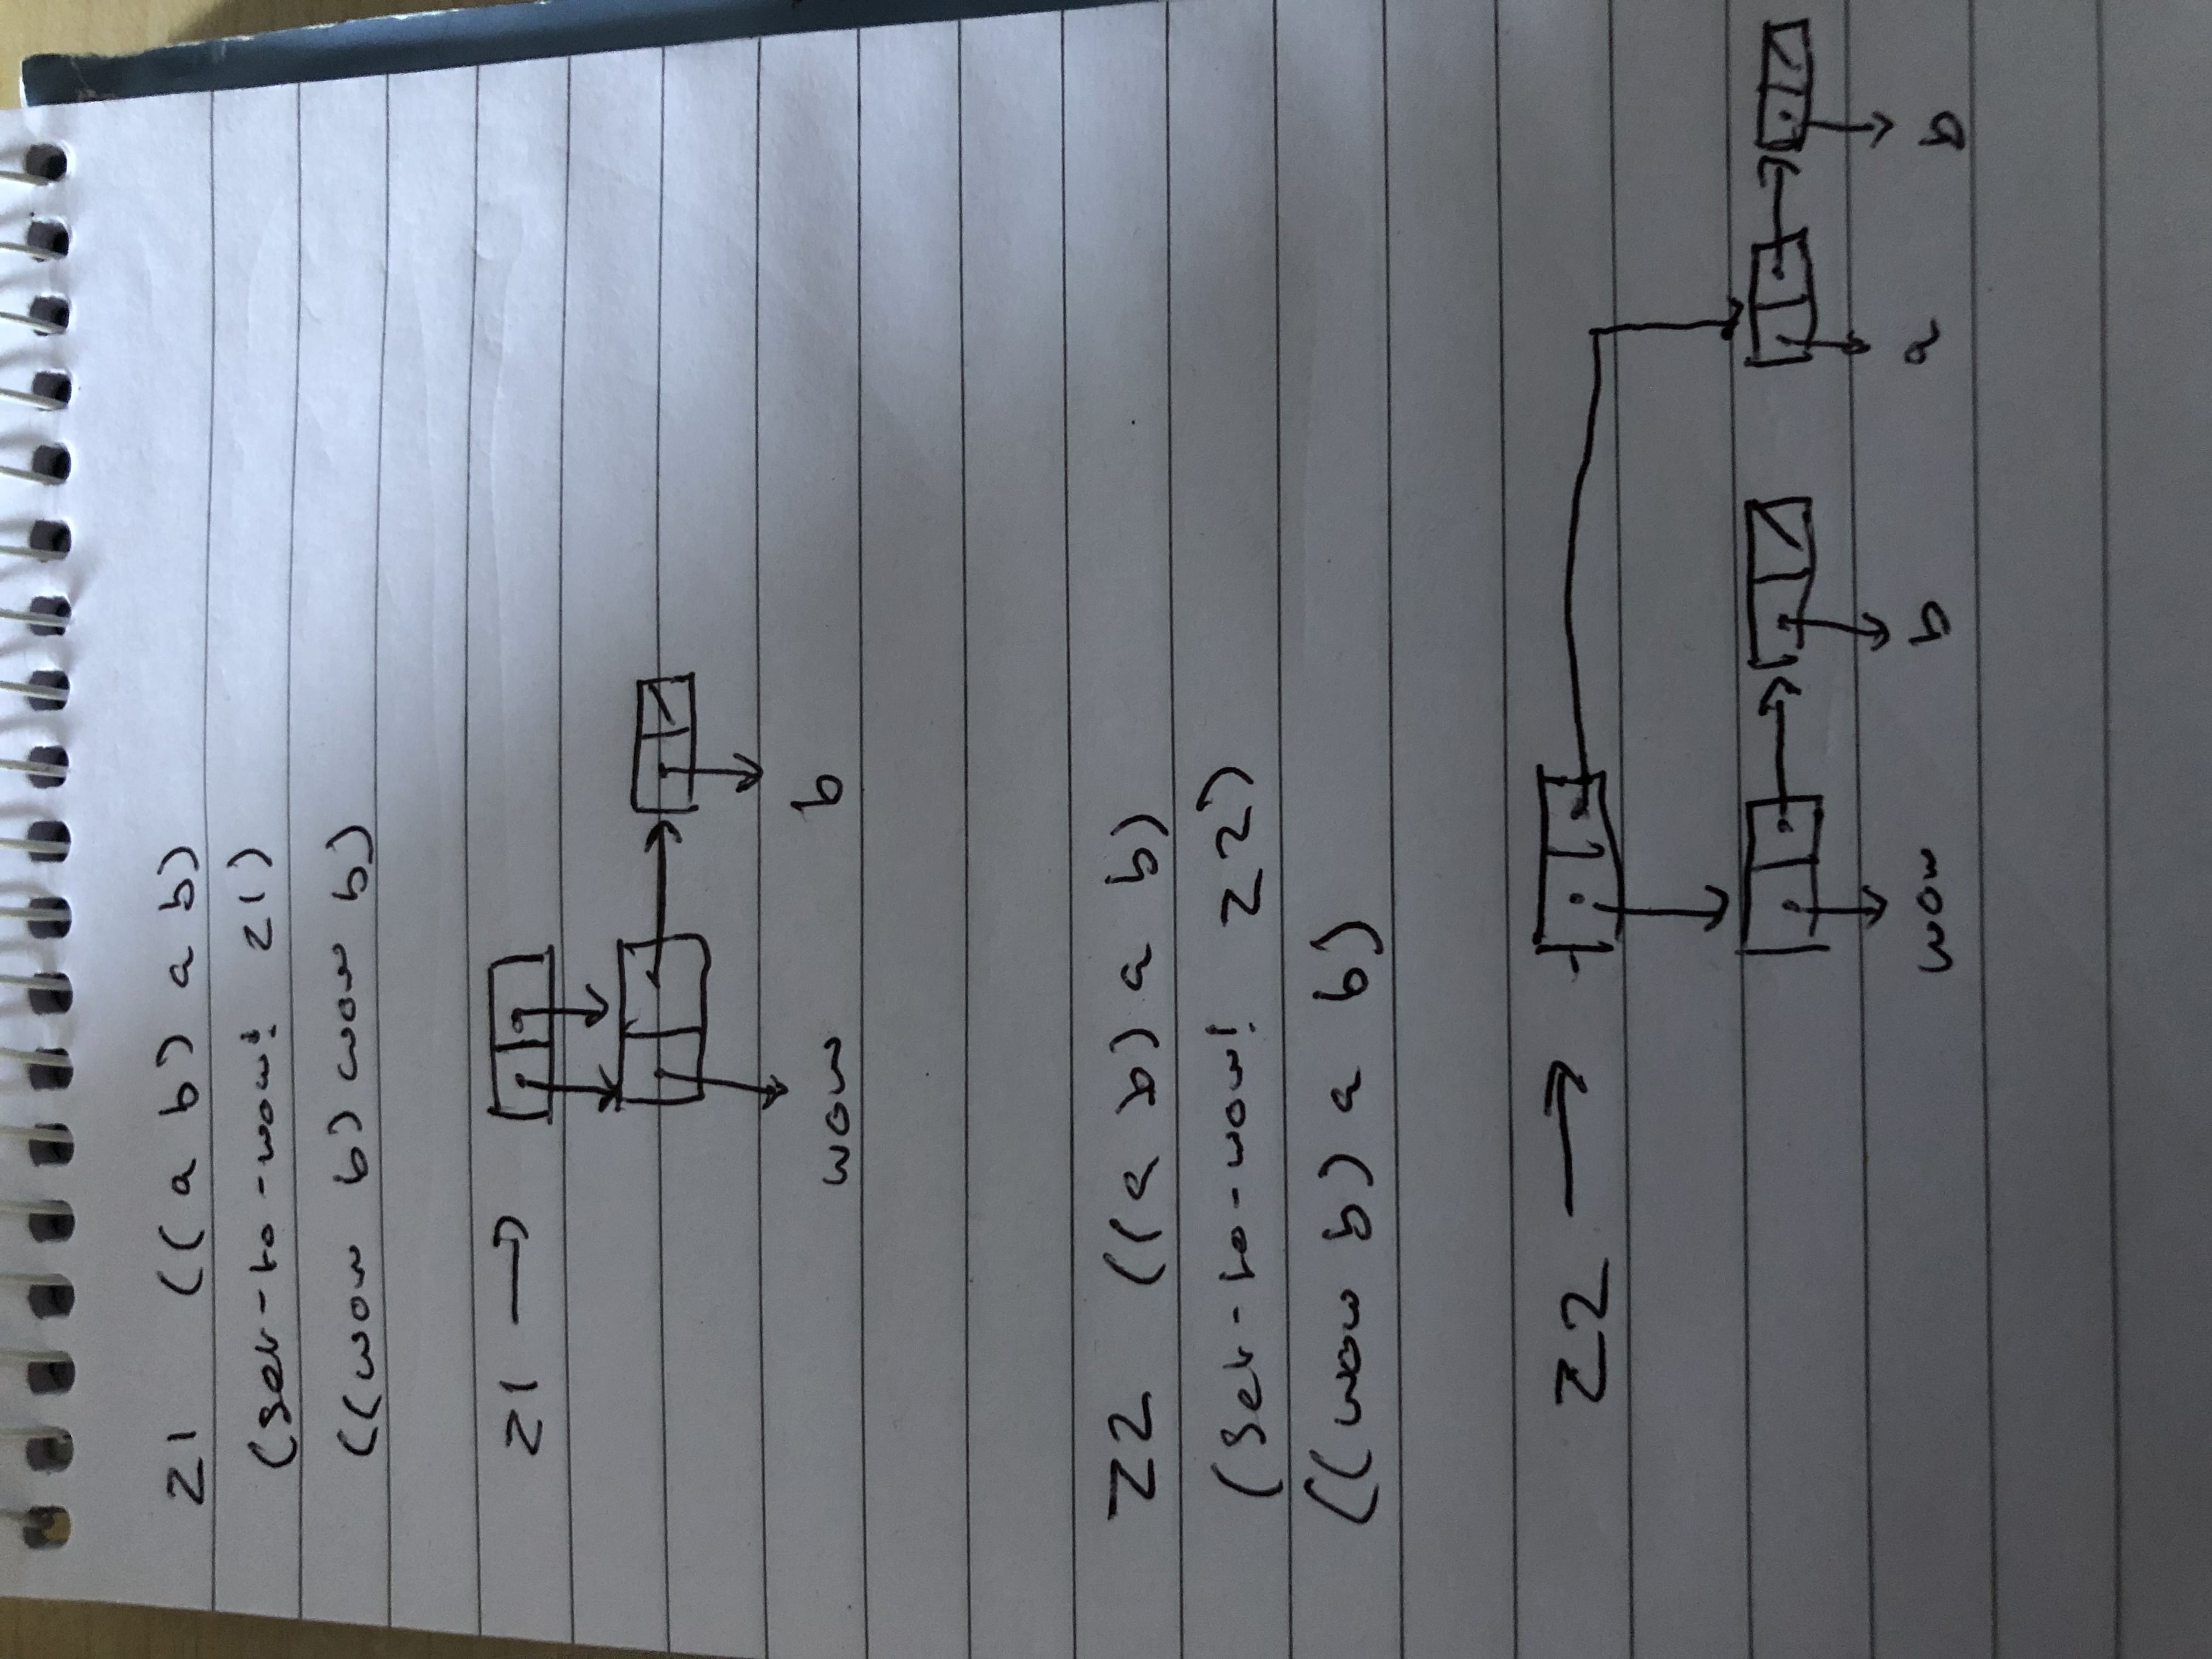 z1 ((a b) a b)
(set-to-wow! z1)
((wow b) wow b)
z1 →
wow b
z2 ((a b) a b)
(set-to-wow! z2)
((wow b) a b)
z2 →
wow b a b